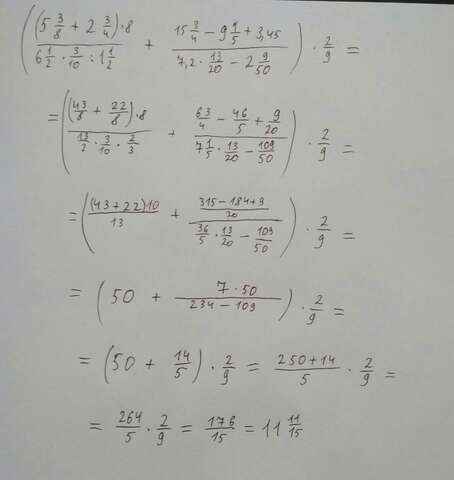 ( ((5 3/8 + 2 3/4)·8)/(6 1/2 · 3/10 : 1 1/2) + (15 3/4 − 9 1/5 + 3,45)/(7,2 · 13/20 − 2 9/50) ) · 2/9 =
= ( ((43/8 + 22/8)·8)/(13/2 · 3/10 · 2/3) + (63/4 − 46/5 + 9/20)/(7 1/5 · 13/20 − 109/50) ) · 2/9 =
= ( ((43+22)10)/13 + ((315−184+9)/20)/(36/5 · 13/20 − 109/50) ) · 2/9 =
= ( 50 + (7·50)/(234−109) ) · 2/9 =
= (50 + 14/5) · 2/9 = (250+14)/5 · 2/9 =
= 264/5 · 2/9 = 176/15 = 11 11/15